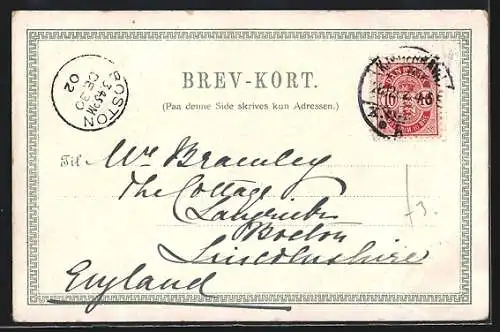 BREV-KORT.
(Paa denne Side skrives kun Adressen.)
BOSTON
3 45 PM
DE 30
02
Til
Mr Bramley
The Cottage
Boston
Lincolnshire
England